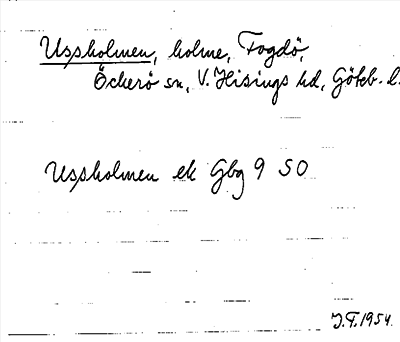 Ussholmen, holme, Fogdö,
Öckerö sn, V. Hisings hd, Göteb. l.
Ussholmen ek Gbg 9 SO
J.F. 1954.